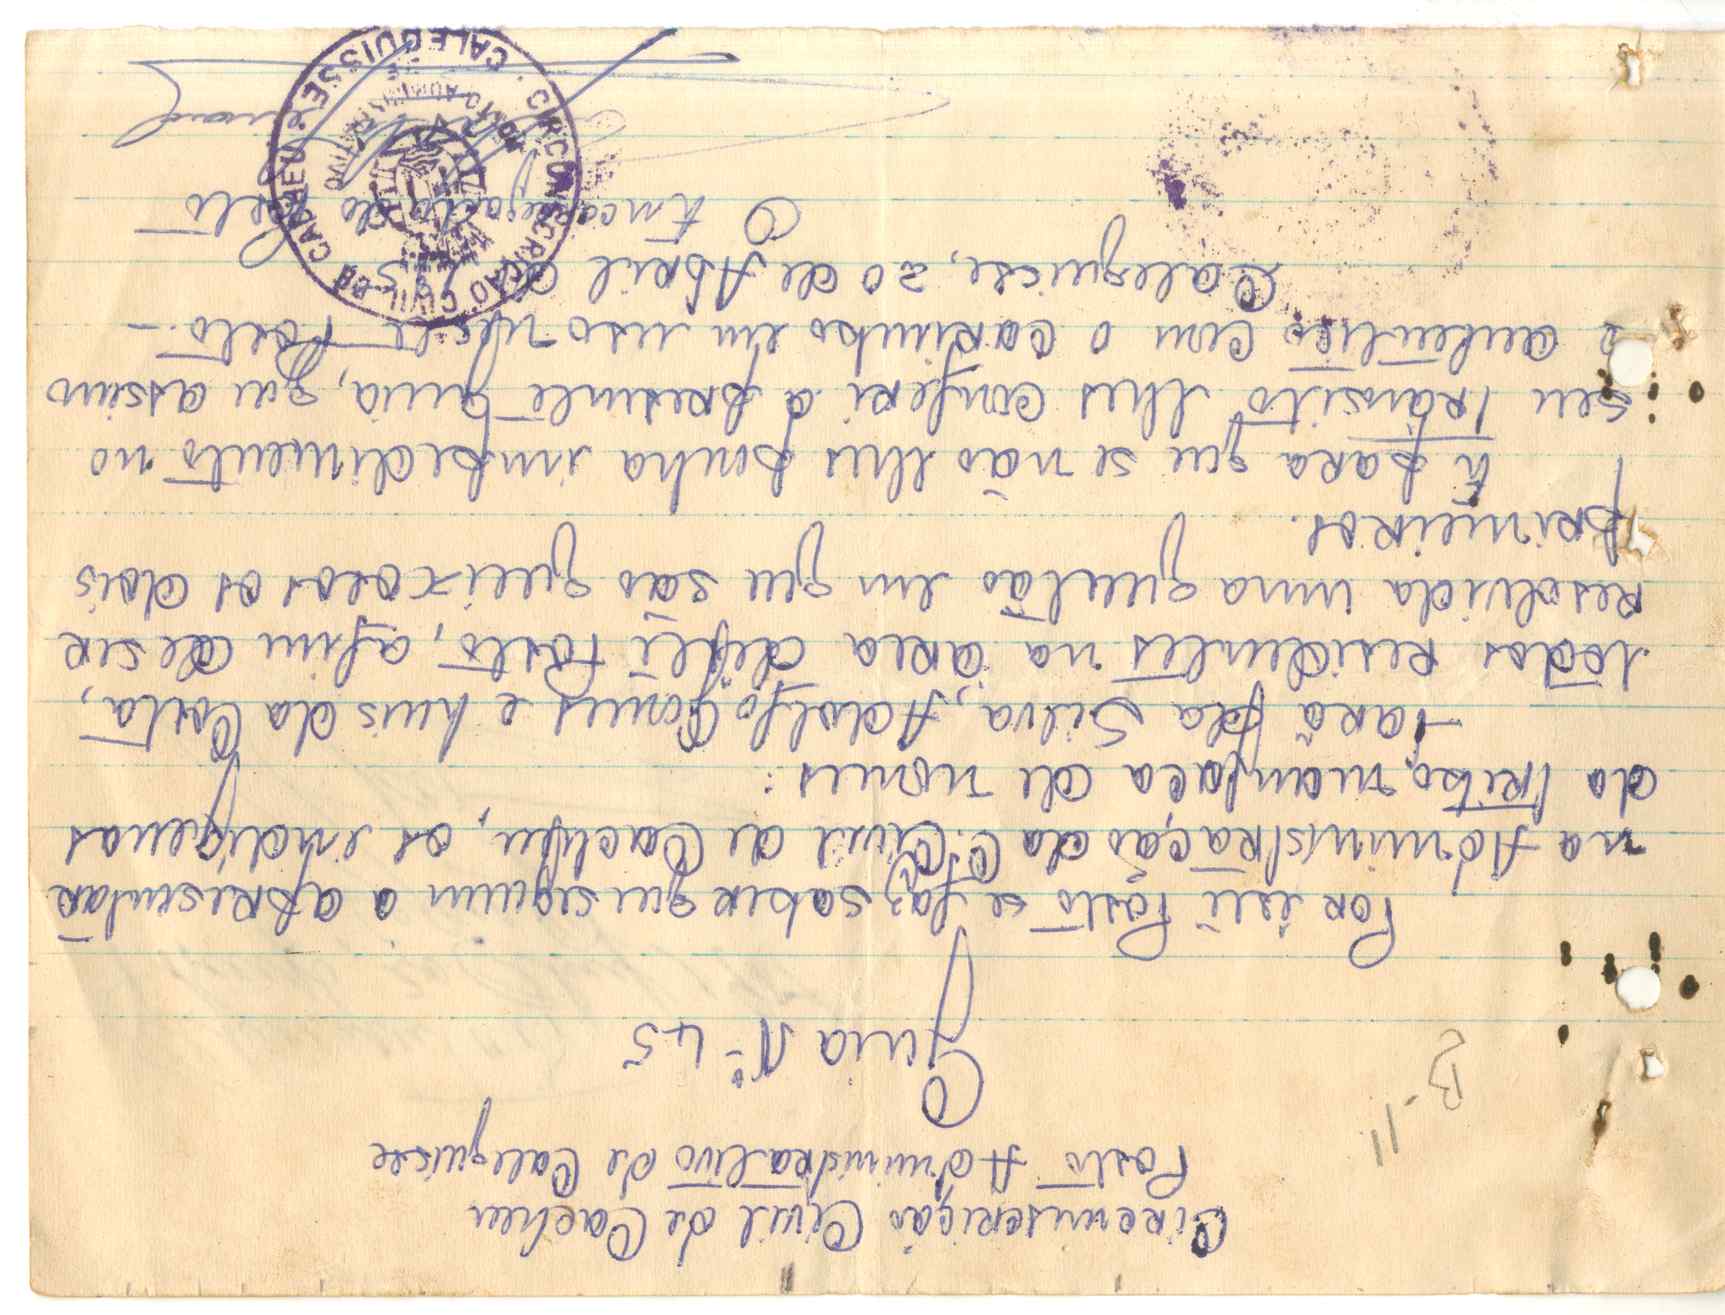 Circunscrição Civil de Cacheu
Posto Administrativo de Caleguisse
B-11
Guia Nº 45
Por êste Pôsto se faz saber que seguem a apresentar
na Administração da C. Civil de Cacheu, os indigenas
da tribo, manjaca de nomes:
da Silva, Adolfo Gomes e Luis da Costa,
todos residentes na área deste Pôsto, afim de ser
resolvida uma questão em que são queixosos os dois
primeiros.
E para que se não lhes ponha impedimento no
seu trânsito lhes conferi a presente guia, que assino
e autentico com o carimbo em uso neste Posto.-
Caleguisse, 20 de Abril de
O Encarregado do Posto
CIRCUNSCRIÇÃO CIVIL DE CACHEU
CALEGUISSE
POSTO ADMINISTRATIVO